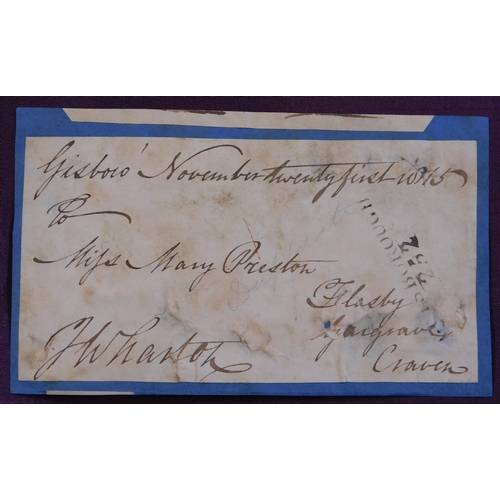 Gisboro' November twenty first 1815
To
Miss Mary Preston
Flasby
Gargrave
Craven
JWharton
SBOROUGH